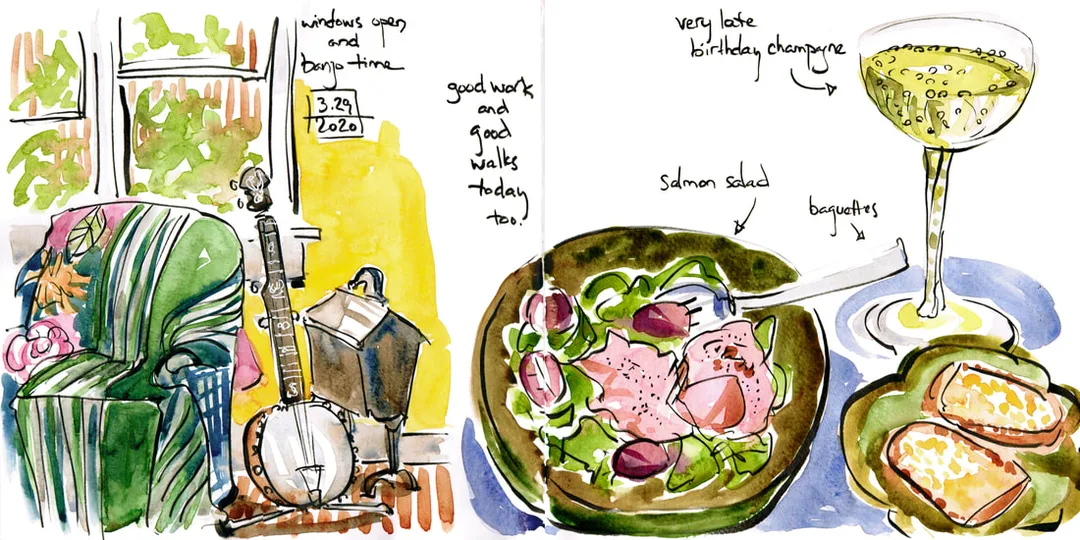 windows open
and
banjo time
3.29
2020
good work
and
good
walks
today
too!
very late
birthday champagne
salmon salad
baguettes